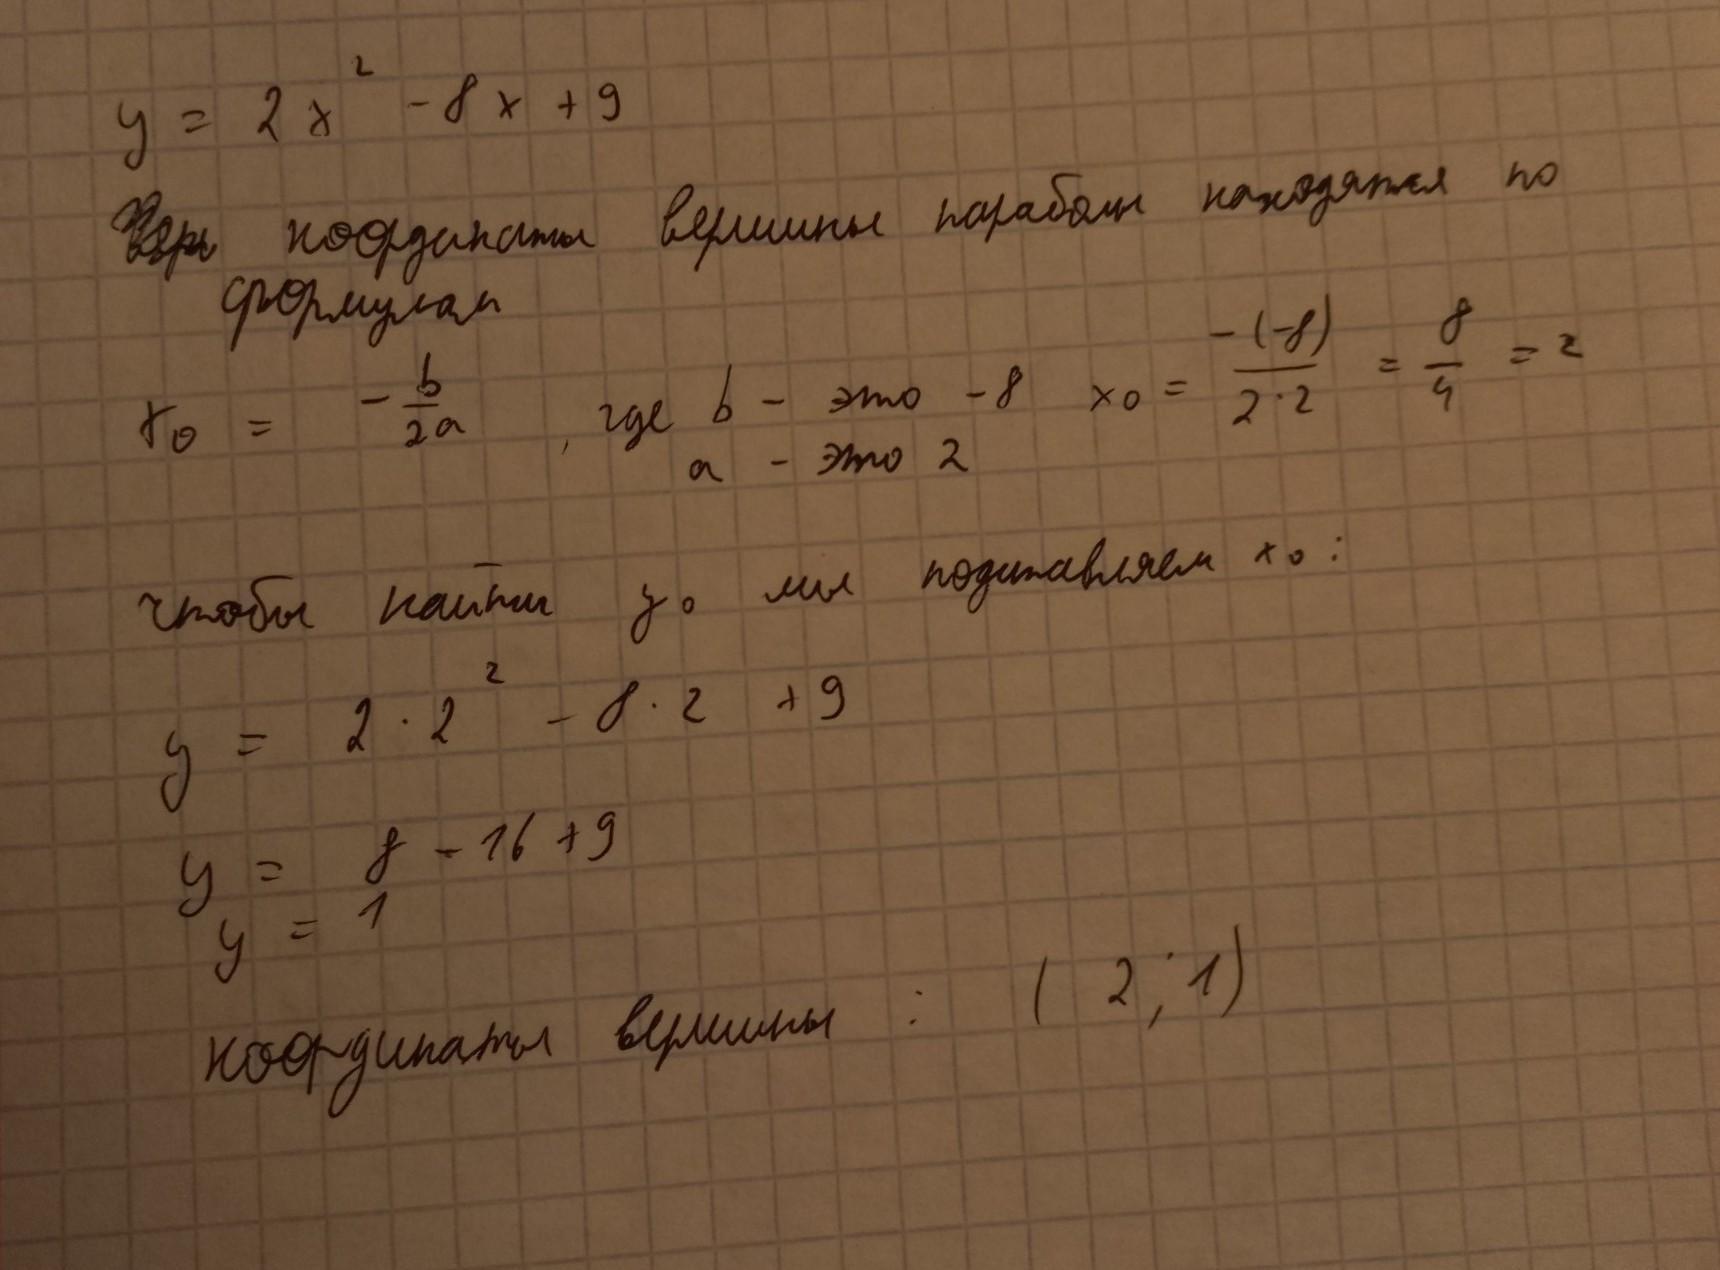 y = 2x² - 8x + 9
координаты вершины параболы находятся по
формулам
x₀ = - b/2a , где b - это -8 x₀ = -(-8)/2·2 = 8/4 = 2
a - это 2
чтобы найти y₀ мы подставляем x₀ :
y = 2 · 2² - 8 · 2 + 9
y = 8 - 16 + 9
y = 1
координаты вершины : ( 2 ; 1 )